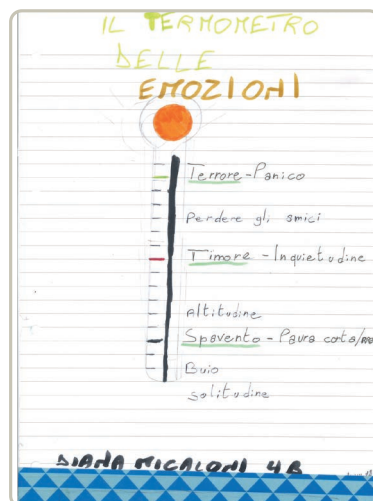 IL TERMOMETRO
DELLE
EMOZIONI
Terrore - Panico
Perdere gli amici
Timore - Inquietudine
Altitudine
Spavento - Paura
Buio
solitudine
DIANA MICALONI 4B